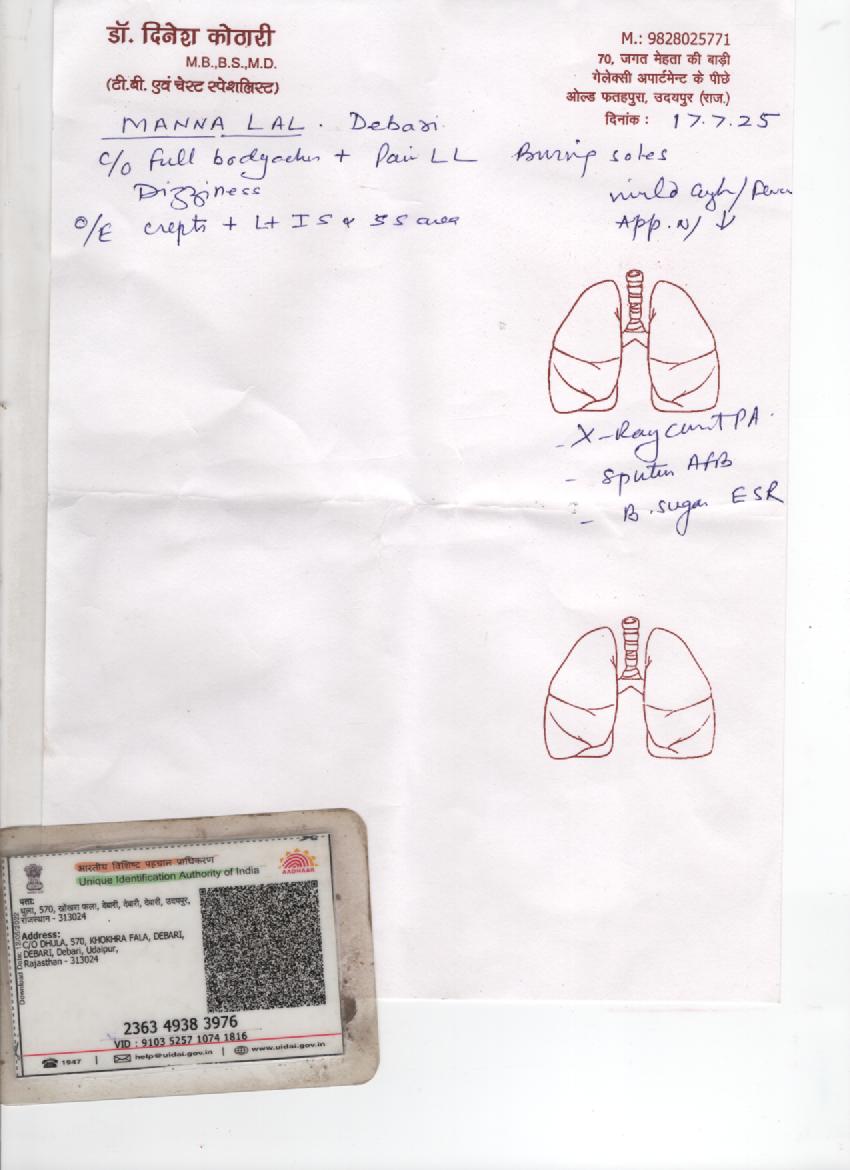 डॉ. दिनेश कोठारी
M.B.,B.S.,M.D.
(टी.बी. एवं चेस्ट स्पेशलिस्ट)
M.: 9828025771
70, जगत मेहता की बाड़ी
गेलेक्सी अपार्टमेन्ट के पीछे
ओल्ड फतहपुरा, उदयपुर (राज.)
दिनांक : 17.7.25
MANNA LAL. Debari
C/O Full bodyaches + Pain LL Burning soles
Dizziness
mild
App. N/ ↓
O/E crepts + Lt IS & SS area
- X-Ray Chest PA.
- Sputum AFB
- B. sugar ESR
भारतीय विशिष्ट पहचान प्राधिकरण
Unique Identification Authority of India
AADHAAR
पता:
धुला, 570, खोखरा फला, देबारी, देबारी, देबारी, उदयपुर,
राजस्थान - 313024
Address:
C/O DHULA, 570, KHOKHRA FALA, DEBARI,
DEBARI, Debari, Udaipur,
Rajasthan - 313024
Download Date:
2363 4938 3976
VID : 9103 5257 1074 1816
1947 | help@uidai.gov.in | www.uidai.gov.in